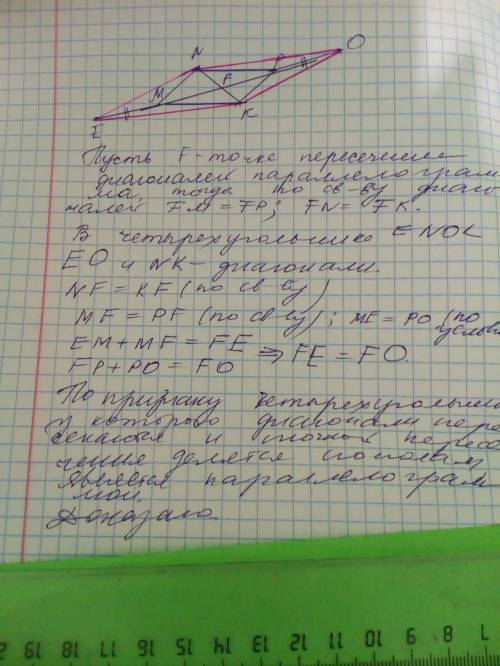 N
P
O
F
M
K
E
Пусть F - точка пересечения
диагоналей параллелограм
ма, тогда по св-ву диаго
налей FM = FP; FN = FK.
В четырехугольнике ENOK
EO и NK - диагонали.
NF = KF (по св-ву)
MF = PF (по св-ву); ME = PO (по
условию
EM + MF = FE
⇒ FE = FO.
FP + PO = FO
По признаку четырехугольник
у которого диагонали пере
секаются и точкой пересе
чения делятся пополам
является параллелограм
мом.
Доказано.
7 8 9 10 11 12 13 14 15 16 17 18 19